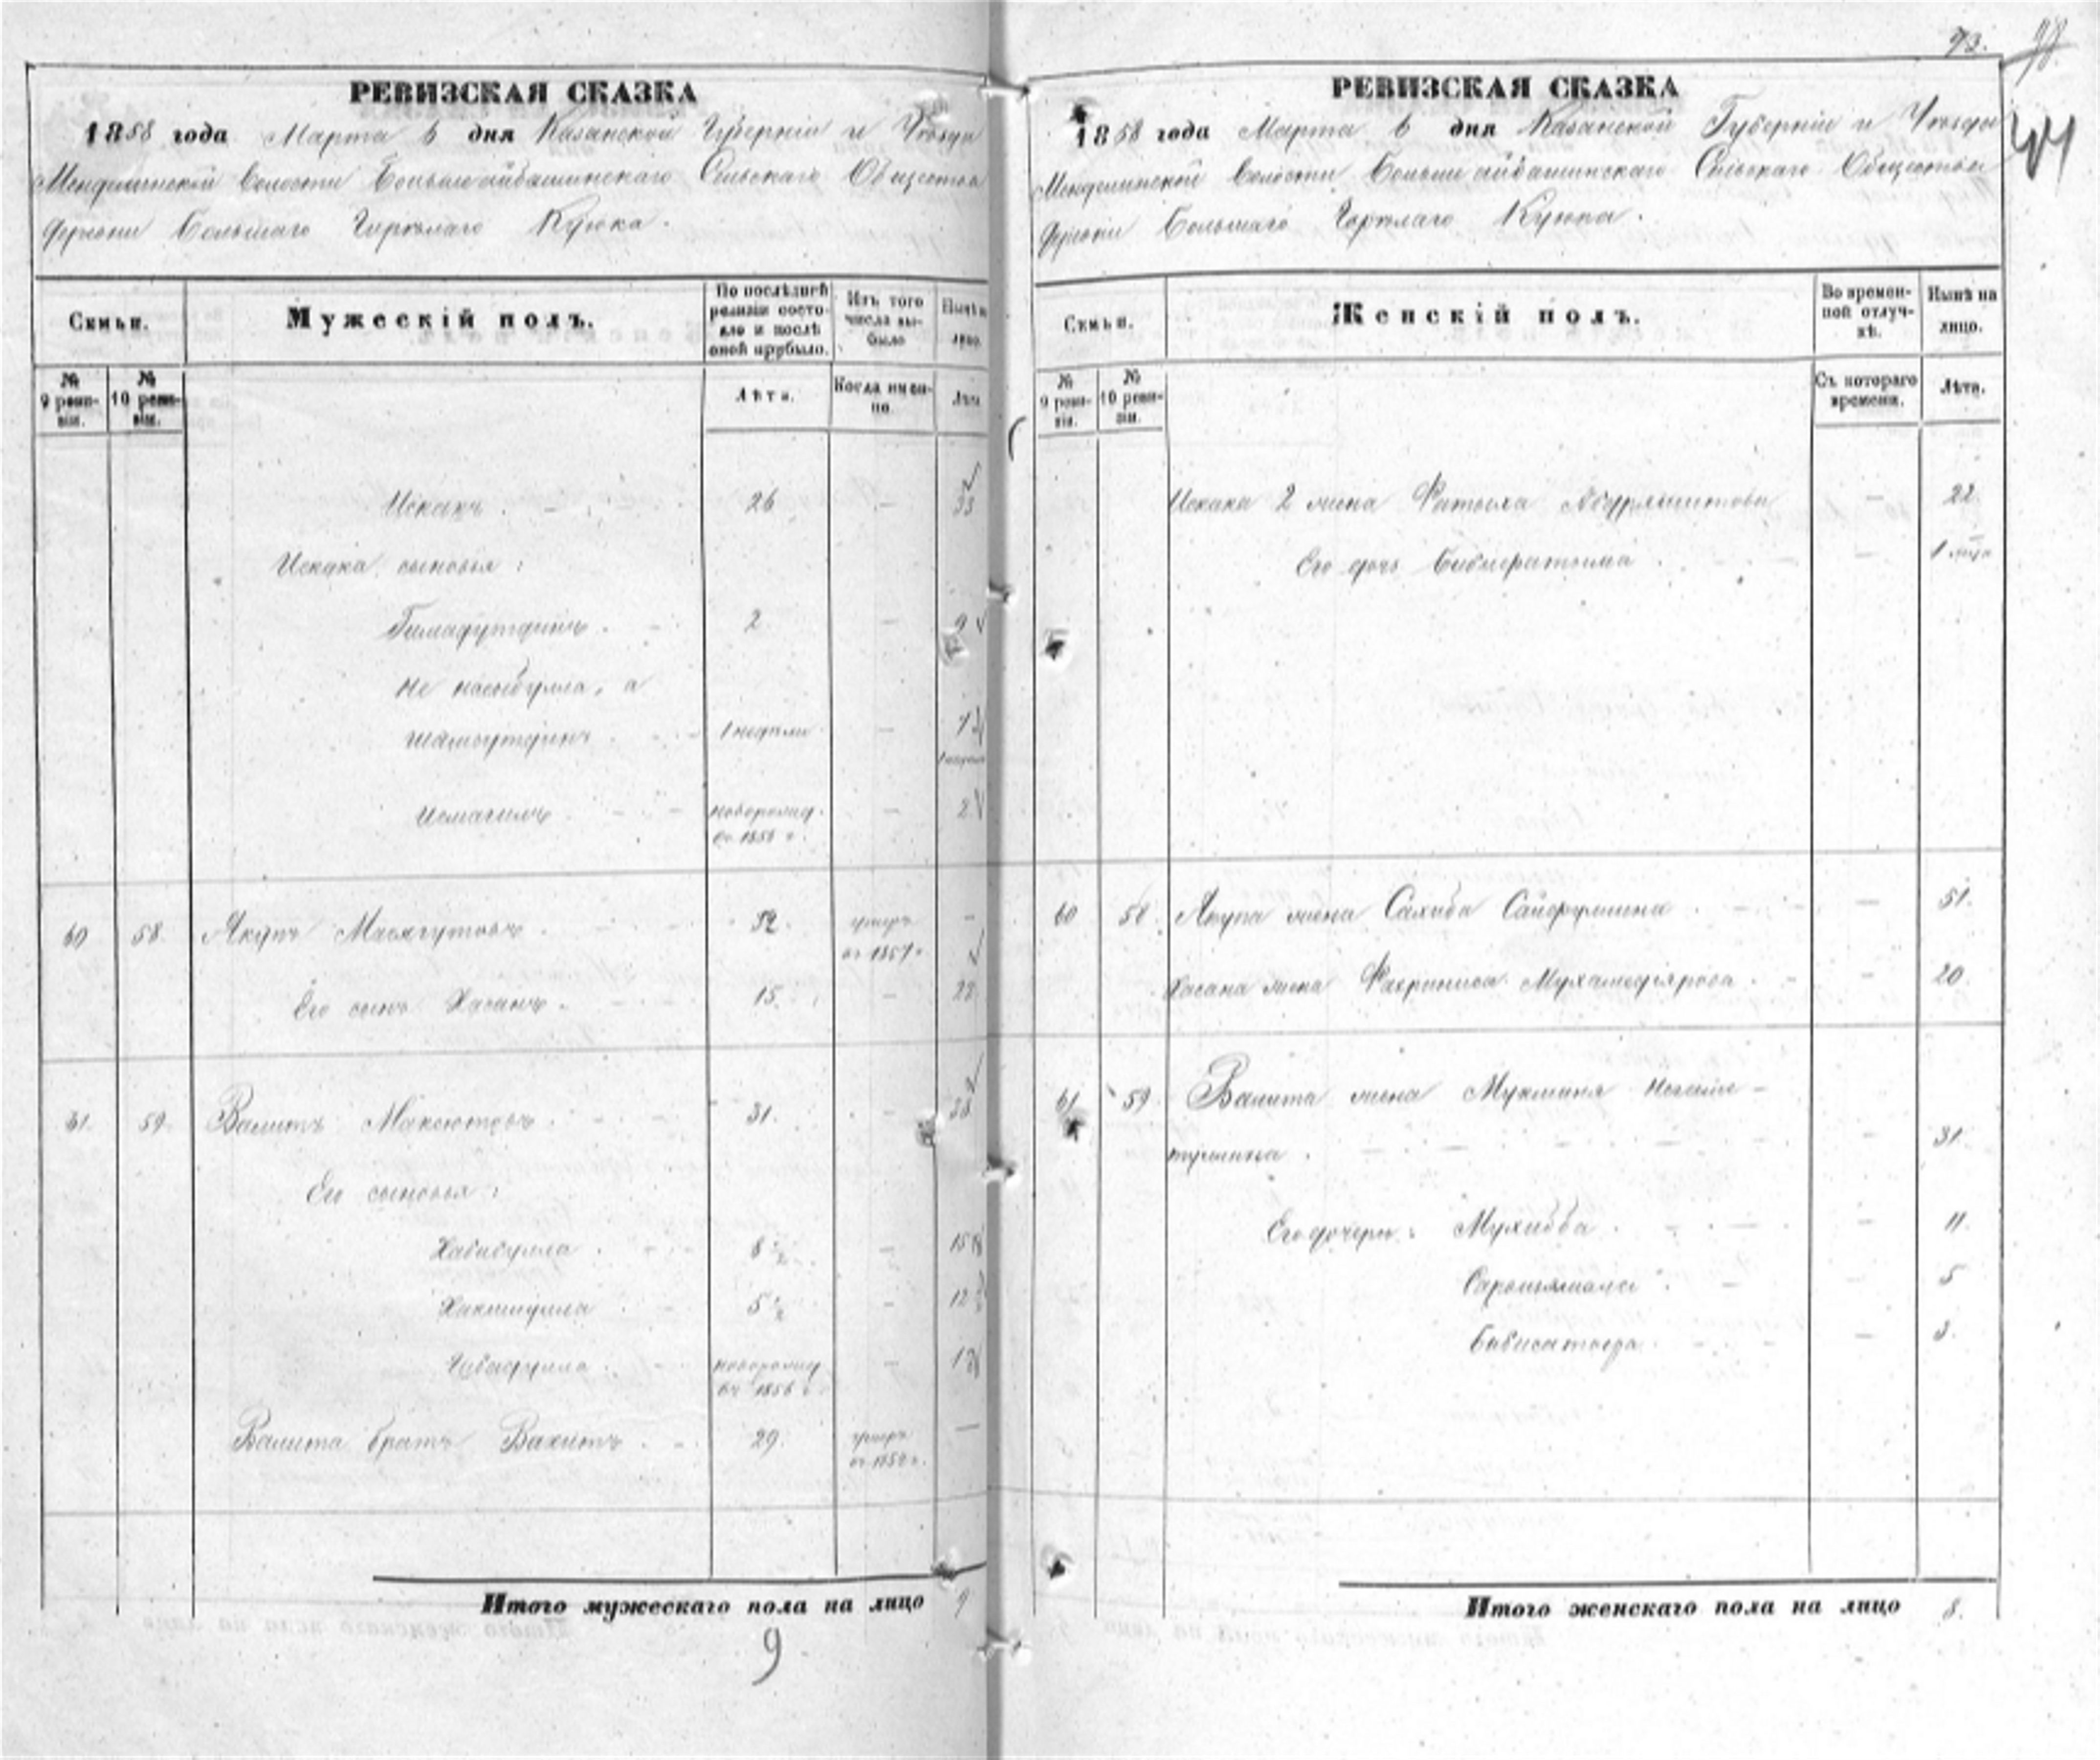 РЕВИЗСКАЯ СКАЗКА
1858 года Марта 6 дня Казанской Губерніи и Уѣзда
Менделинской волости Большеайбашинскаго Сельскаго Общества
деревни Большаго Куюка.
Семьи.
Мужескій полъ.
По послѣдней ревизіи состояло и послѣ оной прубыло.
Изъ того числа выбыло
Нынѣ на лицо.
№ 9 ревизіи.
№ 10 ревизіи.
Лѣта.
Когда именно.
Лѣта
Искакъ . 26 — 33
Искака сыновья :
Гимадутдинъ . 2 — 9
Не насыбулла, а
шамсутдинъ . 1 недѣли —
Исмагилъ новорожд. въ 1856 г. — 2
60 58. Якупъ Масягутовъ . 52. умеръ въ 1857 г. —
Его сынъ Хасанъ . 15. — 22
61. 59. Валитъ Максютовъ . 31. — 38
Его сыновья :
Хабибулла . 8 ½ — 15
Хакимулла 5 ½ — 12
Гибадулла . новорожд въ 1856 г. —
Валита братъ Вахитъ . 29. умеръ въ 1852 г. —
Итого мужескаго пола на лицо 9
9
73.
44
РЕВИЗСКАЯ СКАЗКА
1858 года Марта 6 дня Казанской Губерніи и Уѣзда
Менделинской волости Большеайбашинскаго Сельскаго Общества
деревни Большаго Куюка.
Семьи.
Женскій полъ.
Во временной отлучкѣ.
Нынѣ на лицо.
№ 9 ревизіи.
№ 10 ревизіи.
Съ котораго времени.
Лѣта.
Искака 2 жена Фатыха Абдряшитова — 22.
Его дочь Бибифатыма . —
60 58. Якупа жена Сахиба Сайфуллина . — 51.
Хасана жена Фахриниса Мухамедярова . — 20.
61 59. Валита жена Мукминя Нигаме-
туллина . — 31.
Его дочери : Мухибба . — 11.
— 5
— 3.
Итого женскаго пола на лицо 8.